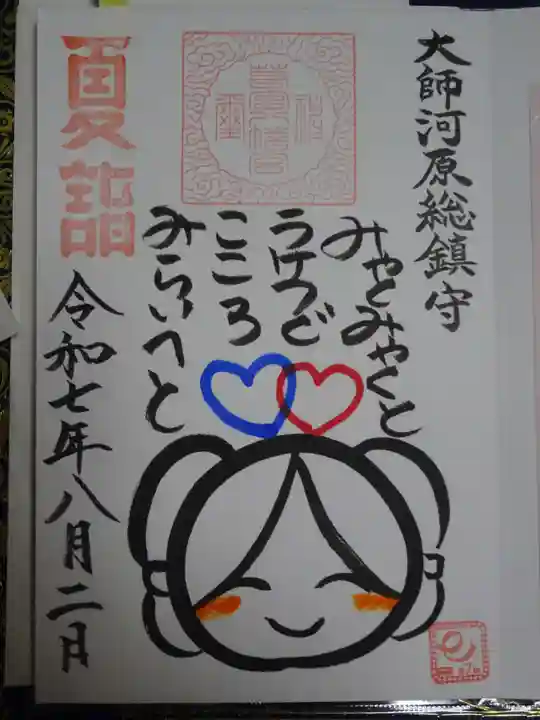 大師河原総鎮守
みゃくみゃくと
うけつぐ
こころ
みらいへと
夏詣
令和七年八月二日